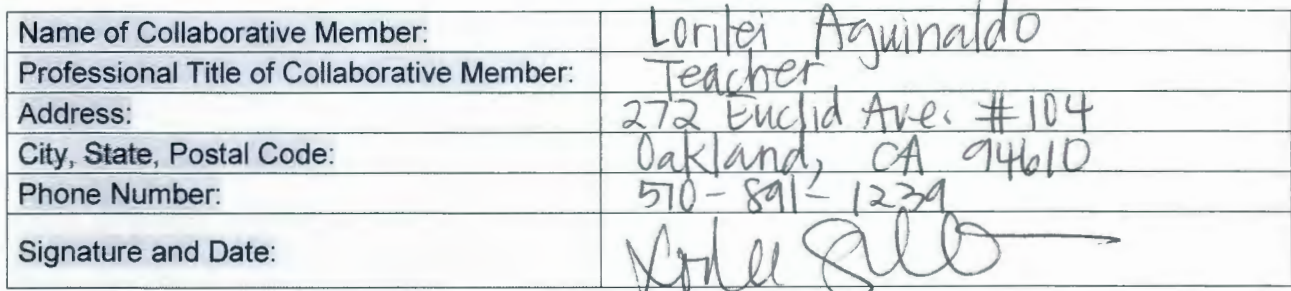 Name of Collaborative Member: Lorilei Aguinaldo
Professional Title of Collaborative Member: Teacher
Address: 272 Euclid Ave. #104
City, State, Postal Code: Oakland, CA 94610
Phone Number: 510-891-1239
Signature and Date: